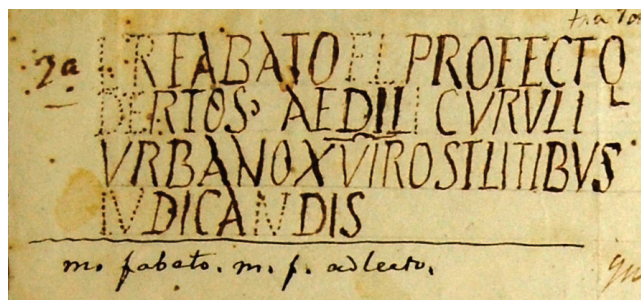 fra Tor
2a L RFABATO F L PROFECTO
DERTOS· AEDILI CVRVLI
VRBANOXVIROSTLITIBVS
IVDICANDIS
m. fabato. m. f. adlecto.